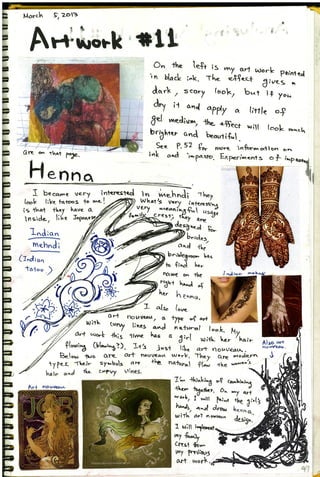 March 5, 2013
Artwork #11
On the left is my art work painted
in black ink. The effect gives a
dark, scary look, but if you
dry it and apply a little of
gel medium, the effect will look much
brighter and beautiful.
See P.52 for more information on
ink and impasto. Experiments of impasto
are on that page.
Henna
I became very interested in mehndi. They
look like tattoos to me! What's very interesting
is that they have a very meaningful usage
inside, like Japanese family crest, they are
designed for
brides,
and the
bridegroom has
to find her
name on the
right hand of
her henna.
Indian
mehndi
(Indian
tatoo)
Indian mehndi
I also love
art nouveau, a type of art
with curvy lines and natural look. My
art work this time has a girl with her hair
flowing (blowing?). It's just like art nouveau.
Below two are art nouveau work. They are modern
types. Their symbols are the natural flow the women's
hair and the curvy vines.
Also art
nouveau
Art nouveau
I'm thinking of combining
them together. On my art
work, I will paint the girl's
hands, and draw henna,
with art nouveau design.
I will implement
my family
crest from
my previous
art work.
49